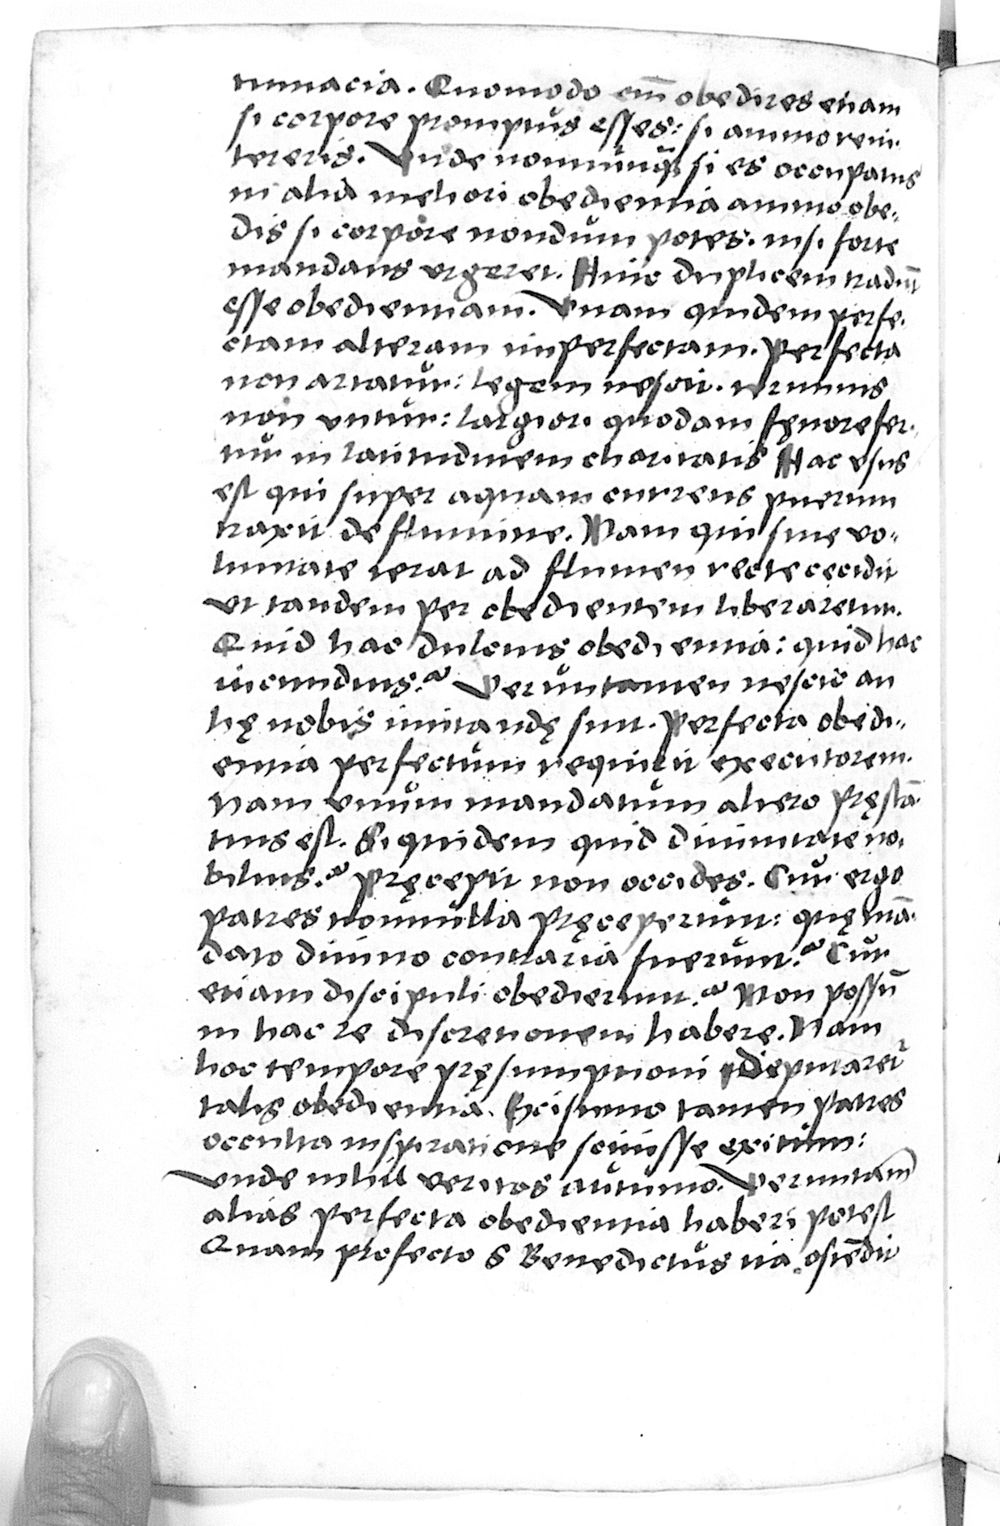 tumacia. Quomodo em̄ obedires etiam
si corpore promptus esses: si animo reni-
tereris. Vnde nonnunq̄ si es occupatus
in alia meliori obedientia animo obe-
dis si corpore nondum potes. nisi forte
mandans vrgeret. Hinc duplicem tradūt
esse obedientiam. Vnam quidem perfe-
ctam alteram imperfectam. Perfecta
non artatur: legem nescit. terminis
non vtitur: largiori quodam fęnore fer-
tur in latitudinem charitatis Hac vsus
est qui super aquam currens puerum
traxit de flumine. Nam qui sine vo-
luntate ierat ad flumen recte cecidit
vt tandem per obedientem liberaretur.
Quid hac dulcius obedientia: quid hac
iucundius? Veruntamen nescio an
hę nobis imitandę sunt. Perfecta obedi-
entia perfectum requirit executorem.
Nam vnum mandatum altero pręstā-
tius est. Siquidem quid diuinitate no-
bilius? Pręcepit non occides. Cur ergo
patres nonnulla pręceperunt: quę mā-
dato diuino contraria fuerunt? Cur
etiam discipuli obedierunt? Non possū
in hac re discretionem habere. Nam
hoc tempore pręsumptioni deputaret̄
talis obedientia. Existimo tamen patres
occulta inspiratione sciuisse exitum:
vnde nihil veritos autumo. Veruntam̄
alias perfecta obedientia haberi potest
Quam profecto S Benedictus ita ostēdit